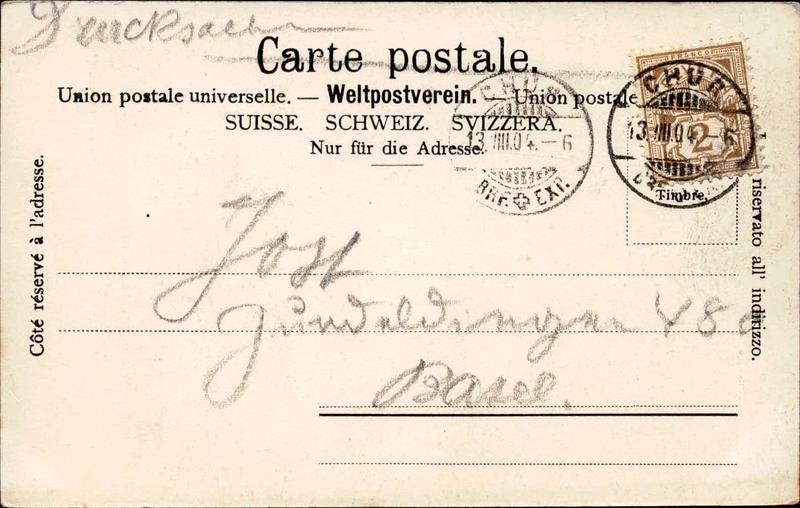 Drucksache
Carte postale.
Union postale universelle. — Weltpostverein. — Union postale
SUISSE. SCHWEIZ. SVIZZERA.
Nur für die Adresse.
CHUR
13.VIII.04.–6
BRF. EXP.
FRANCO
2
CHUR
13.VIII.04.–6
Timbre.
Côté réservé à l'adresse.
riservato all' indirizzo.
Jost
Gundeldingen 48
Basel.